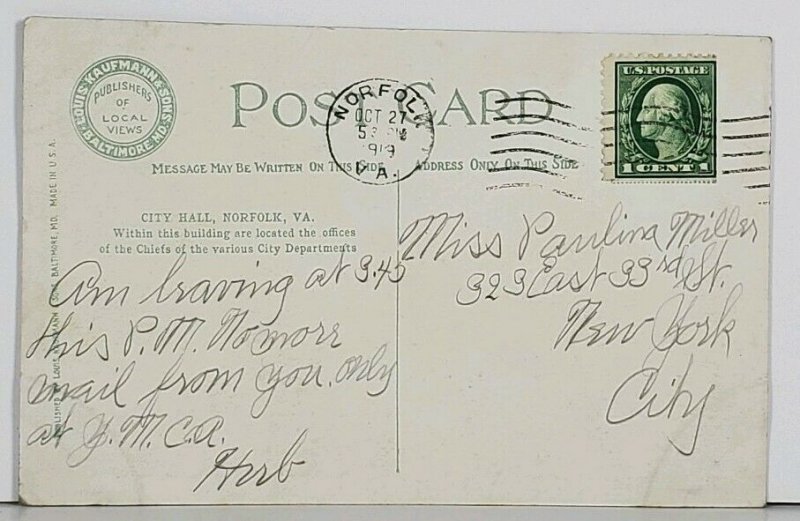 LOUIS KAUFMANN & SONS
BALTIMORE, MD.
PUBLISHERS
OF
LOCAL
VIEWS
POST CARD
NORFOLK
OCT 27
1919
VA.
U.S. POSTAGE
1 CENT 1
MESSAGE MAY BE WRITTEN ON THIS SIDE
ADDRESS ONLY ON THIS SIDE
CITY HALL, NORFOLK, VA.
Within this building are located the offices
of the Chiefs of the various City Departments
BALTIMORE, MD. MADE IN U.S.A.
Am leaving at 3.45
this P.M. No more
mail from you. only
at Y.M.C.A.
Herb
Miss Paulina Miller
323 East 33rd St.
New York
City